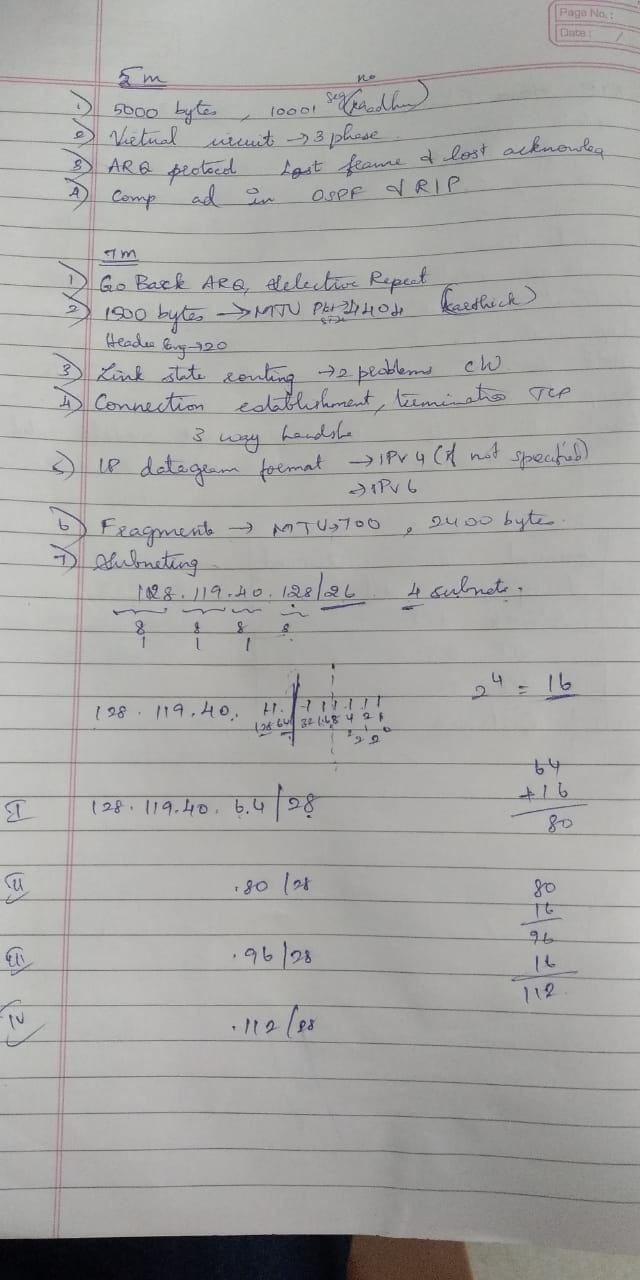 Page No.:
Date: /
5 m
1) 5000 bytes, 10001 seg no
2) Virtual circuit → 3 phase
3) ARQ protocol Lost frame & lost acknowleg
4) Comp ad in OSPF & RIP
7m
1) Go Back ARQ, Selective Repeat
2) 1500 bytes → MTU (Karthick)
Header → 20
3) Link state routing → 2 problems CW
4) Connection establishment, termination TCP
3 way handsh
5) IP datagram format → IPV4 (if not specified)
→ IPV6
6) Fragments → MTU → 700, 2400 bytes.
7) Subneting
128.119.40.128/26 4 subnets.
8 8 8 8
1 1 1
2^4 = 16
128.119.40. 11. 111111
128 64 32 16 8 4 2 1
64
+16
80
I 128.119.40.64/28
II .80/28
80
16
96
III .96/28
16
112
IV .112/28